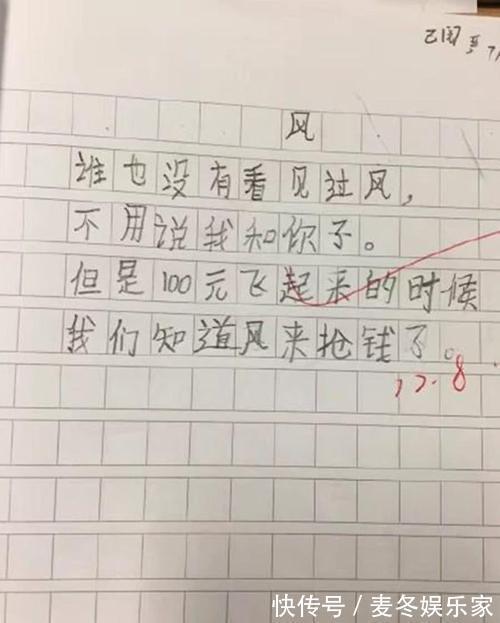 风
谁也没有看见过风，
不用说我和你了。
但是100元飞起来的时候
我们知道风来抢钱了。
12.8
快传号/麦冬娱乐家